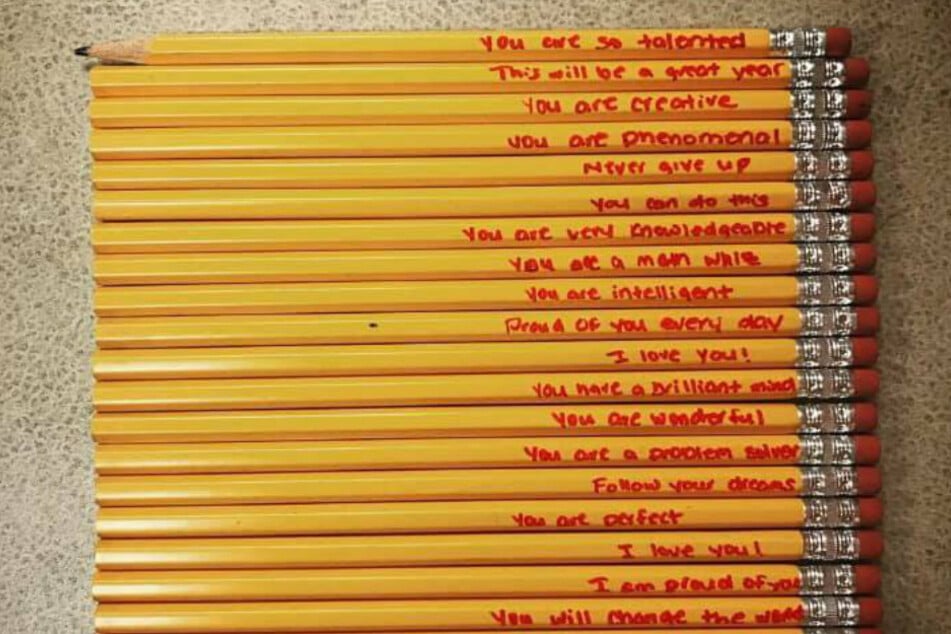 You are so talented
This will be a great year
You are creative
You are phenomenal
Never give up
You can do this
You are very knowledgeable
You are a math whiz
You are intelligent
Proud of you every day
I love you!
You have a brilliant mind
You are wonderful
You are a problem solver
Follow your dreams
You are perfect
I love you!
I am proud of you
You will change the world